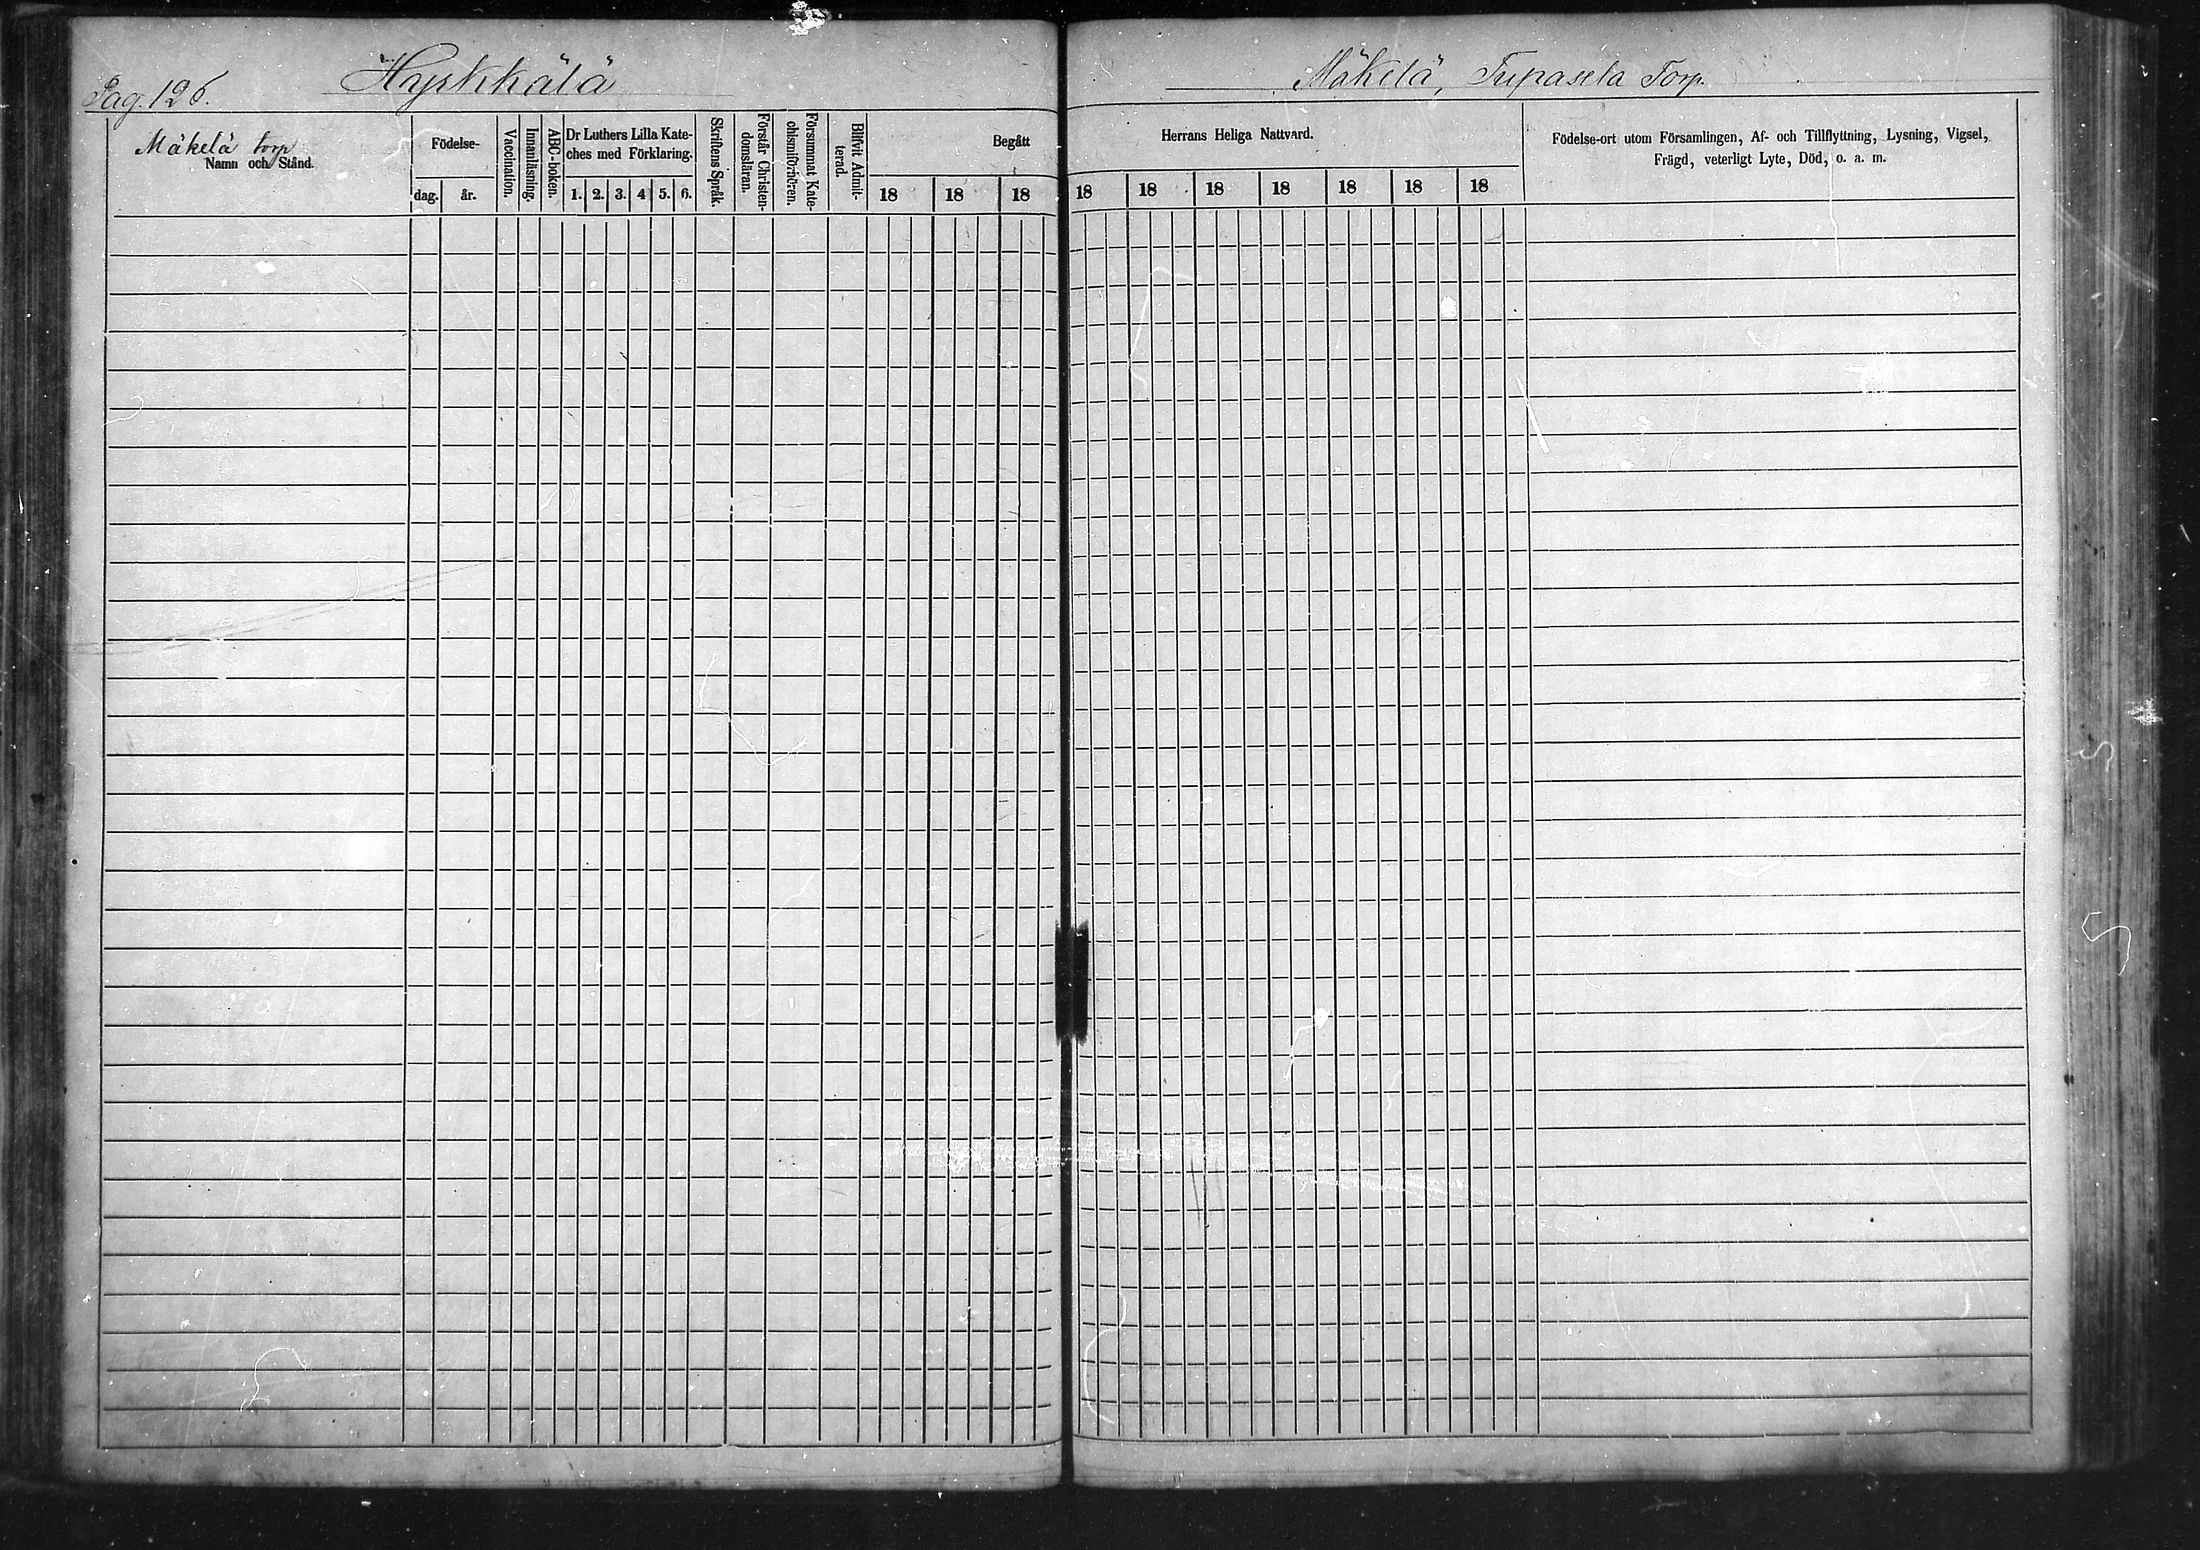 Pag. 126.
Hyrkkälä
Mäkelä, Tupasela Torp.
Mäkelä torp
Namn och Stånd.
Födelse-
dag.
år.
Vaccination.
Innanläsning.
ABC-boken.
Dr Luthers Lilla Kate-
ches med Förklaring.
1. 2. 3. 4 5. 6.
Skriftens Språk.
Förstår Christen-
domsläran.
Försummat Kate-
chismiförhören.
Blifvit Admit-
terad.
Begått
18 18 18
Herrans Heliga Nattvard.
18 18 18 18 18 18 18
Födelse-ort utom Församlingen, Af- och Tillflyttning, Lysning, Vigsel,
Frägd, veterligt Lyte, Död, o. a. m.